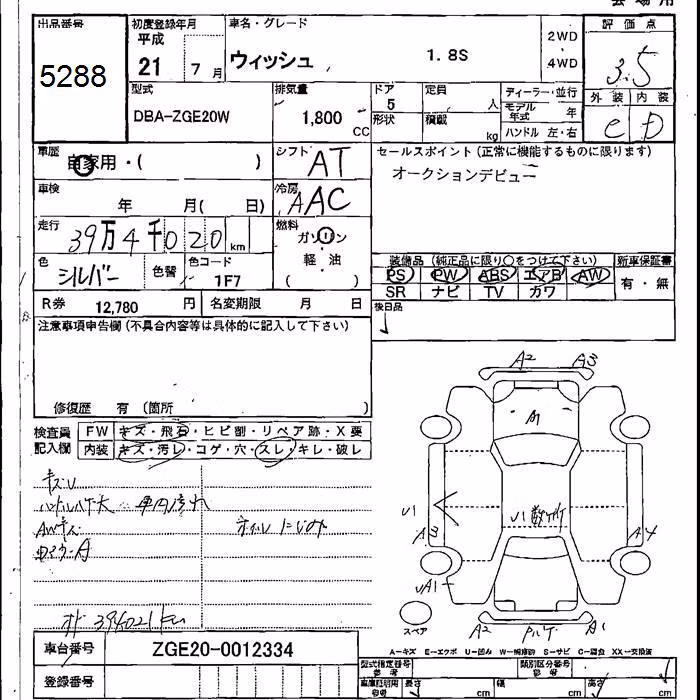 会場用
出品番号
5288
初度登録年月
平成
21 7月
車名・グレード
ウィッシュ 1.8S
2WD
4WD
評価点
3.5
外装 内装
C D
型式
DBA-ZGE20W
排気量
1,800 CC
ドア
5
形状
定員 人
積載 kg
ディーラー・並行
モデル年式 年
ハンドル 左・右
車歴
自家用・( )
シフト
AT
セールスポイント(正常に機能するものに限ります)
オークションデビュー
車検
年 月( 日)
冷房
AAC
走行
39万4千020km
燃料
ガソリン
軽・油
( )
色
シルバー
色替
色コード
1F7
装備品 (純正品に限り○をつけて下さい)
PS PW ABS エアB AW
SR ナビ TV カワ
新車保証書
有・無
R券 12,780円
名変期限 月 日
後日品
注意事項申告欄(不具合内容等は具体的に記入して下さい)
修復歴 有 (箇所 )
検査員
記入欄
FW キズ・飛石・ヒビ割・リペア跡・X要
内装 キズ・汚レ・コゲ・穴・スレ・キレ・破レ
A2 A3
A1
U1
A3
U1 数ヶ所
A4
UA1
スペア
A2
A1
394021km
A-キズ E-エクボ U-凹み W-補修跡 S-サビ C-腐食 XX-交換済
車台番号 ZGE20-0012334
登録番号
型式指定番号
参考
類別区分番号
参考
車庫証明用
参考
長さ cm cm cm